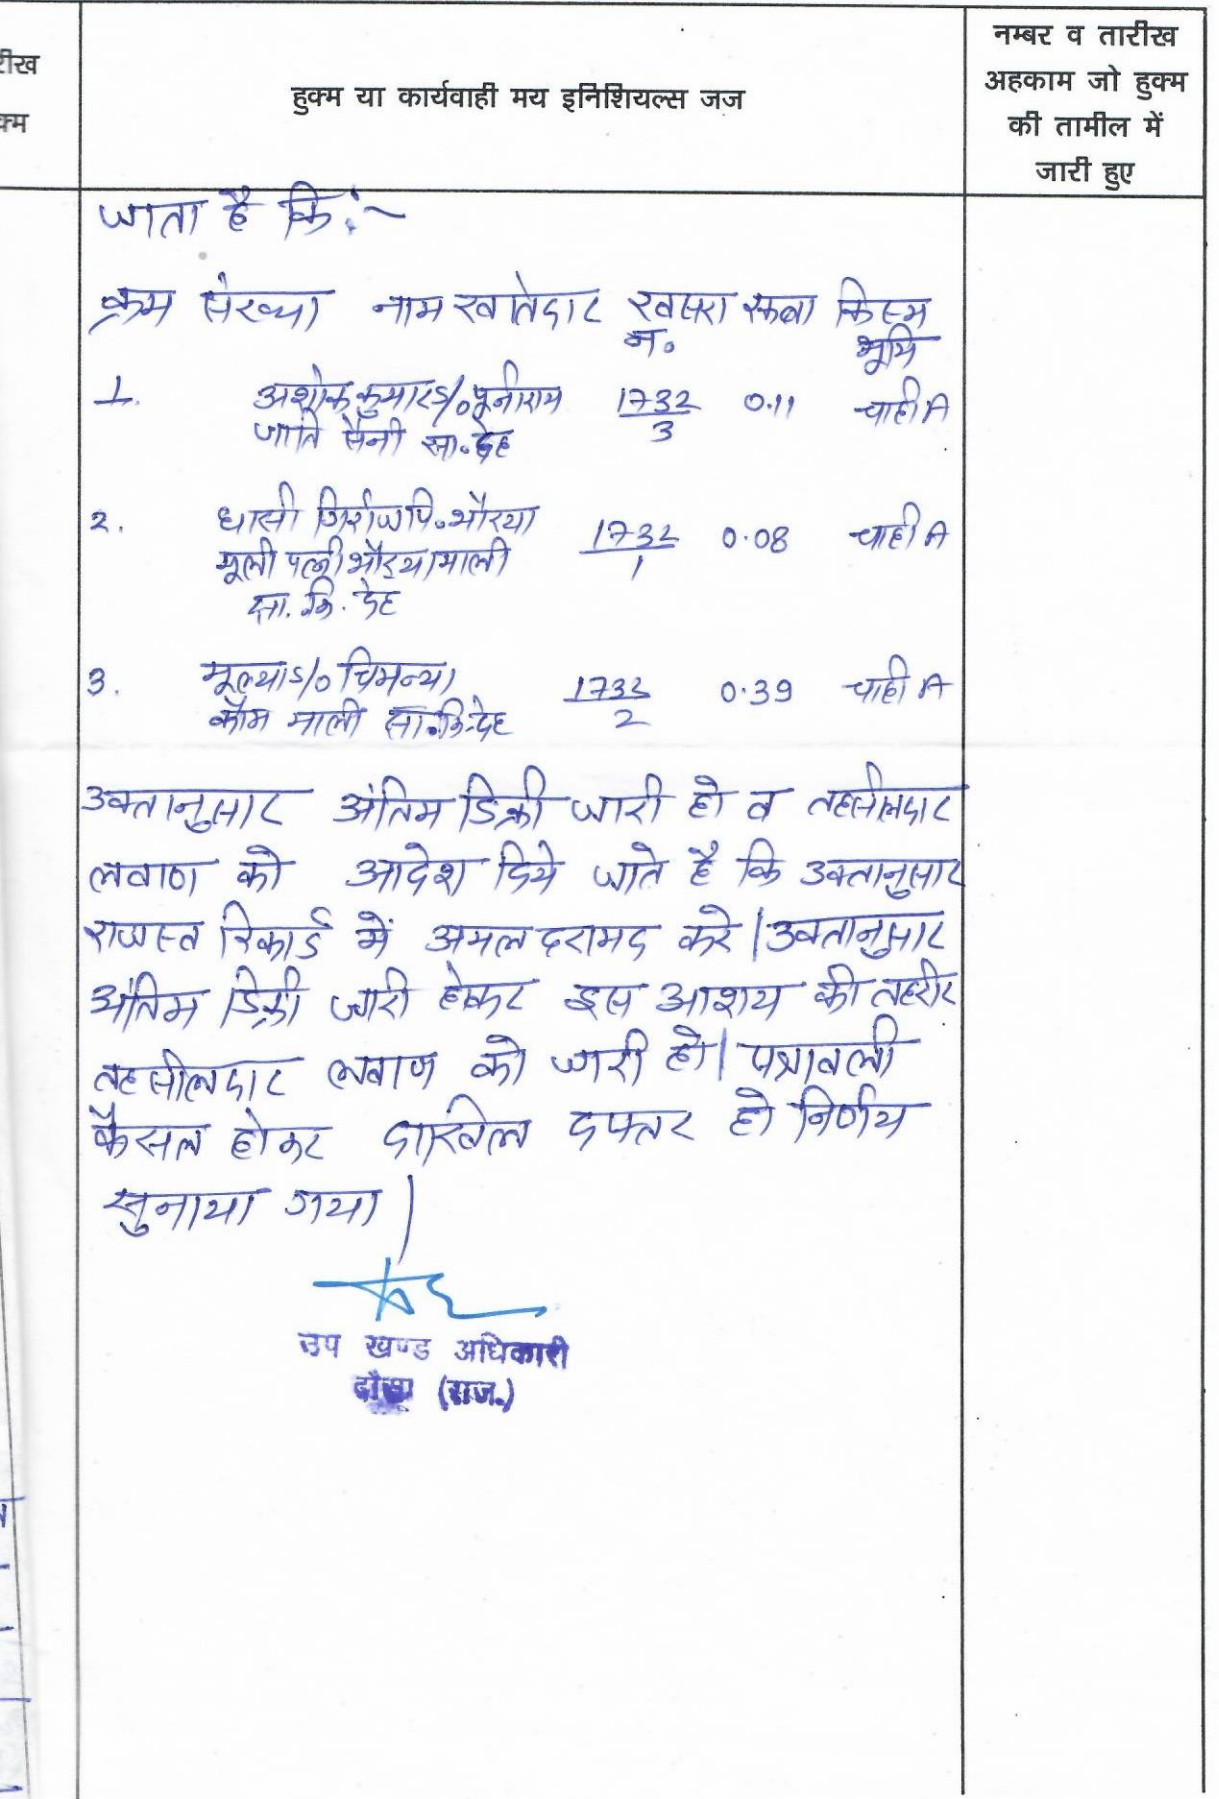 रीख
क्म
हुक्म या कार्यवाही मय इनिशियल्स जज
नम्बर व तारीख
अहकाम जो हुक्म
की तामील में
जारी हुए
जाता है कि:-
क्रम संख्या नाम खातेदार खसरा न. रकबा किस्म भूमि
1. अशोक कुमार S/o पूनीराम 1732/3 0.11 चाही A
जाति सैनी सा. देह
2. घासी गिर्राज पि. भौरया 1732/1 0.08 चाही A
मूली पत्नी भौरया माली
सा. कि. देह
3. मूल्या S/o चिमन्या 1732/2 0.39 चाही A
कौम माली सा. कि. देह
उक्तानुसार अंतिम डिक्री जारी हो व तहसीलदार
लवाण को आदेश दिये जाते है कि उक्तानुसार
राजस्व रिकार्ड में अमल दरामद करे | उक्तानुसार
अंतिम डिक्री जारी होकर इस आशय की तहरीर
तहसीलदार लवाण को जारी हो | पत्रावली
फैसल होकर दाखिल दफ्तर हो निर्णय
सुनाया गया |
उप खण्ड अधिकारी
दौसा (राज.)